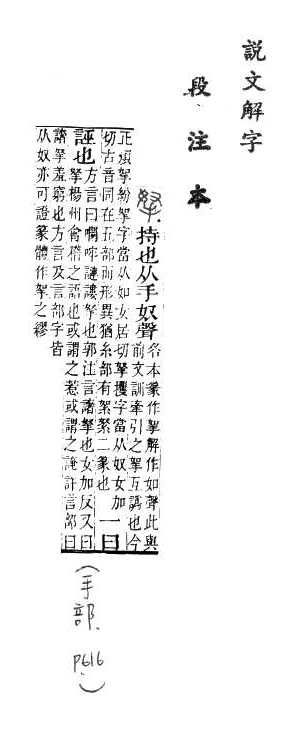 說文解字
段注本
拏 持也从手奴聲 各本篆作挐解作如聲此與
前文訓牽引之挐互譌也今
正煩挐紛挐字當从如女居切拏攫字當从奴女加
切古音同在五部而形異猶糸部有絮䋈二篆也 一曰
誣也 方言曰㘓哰謰謱拏也郭注言譇拏也女加反又曰
拏楊州會稽之語也或謂之惹或謂之䛳許言部曰
譇拏羞窮也方言及言部字皆
从奴亦可證篆體作挐之繆
(手部 P616)